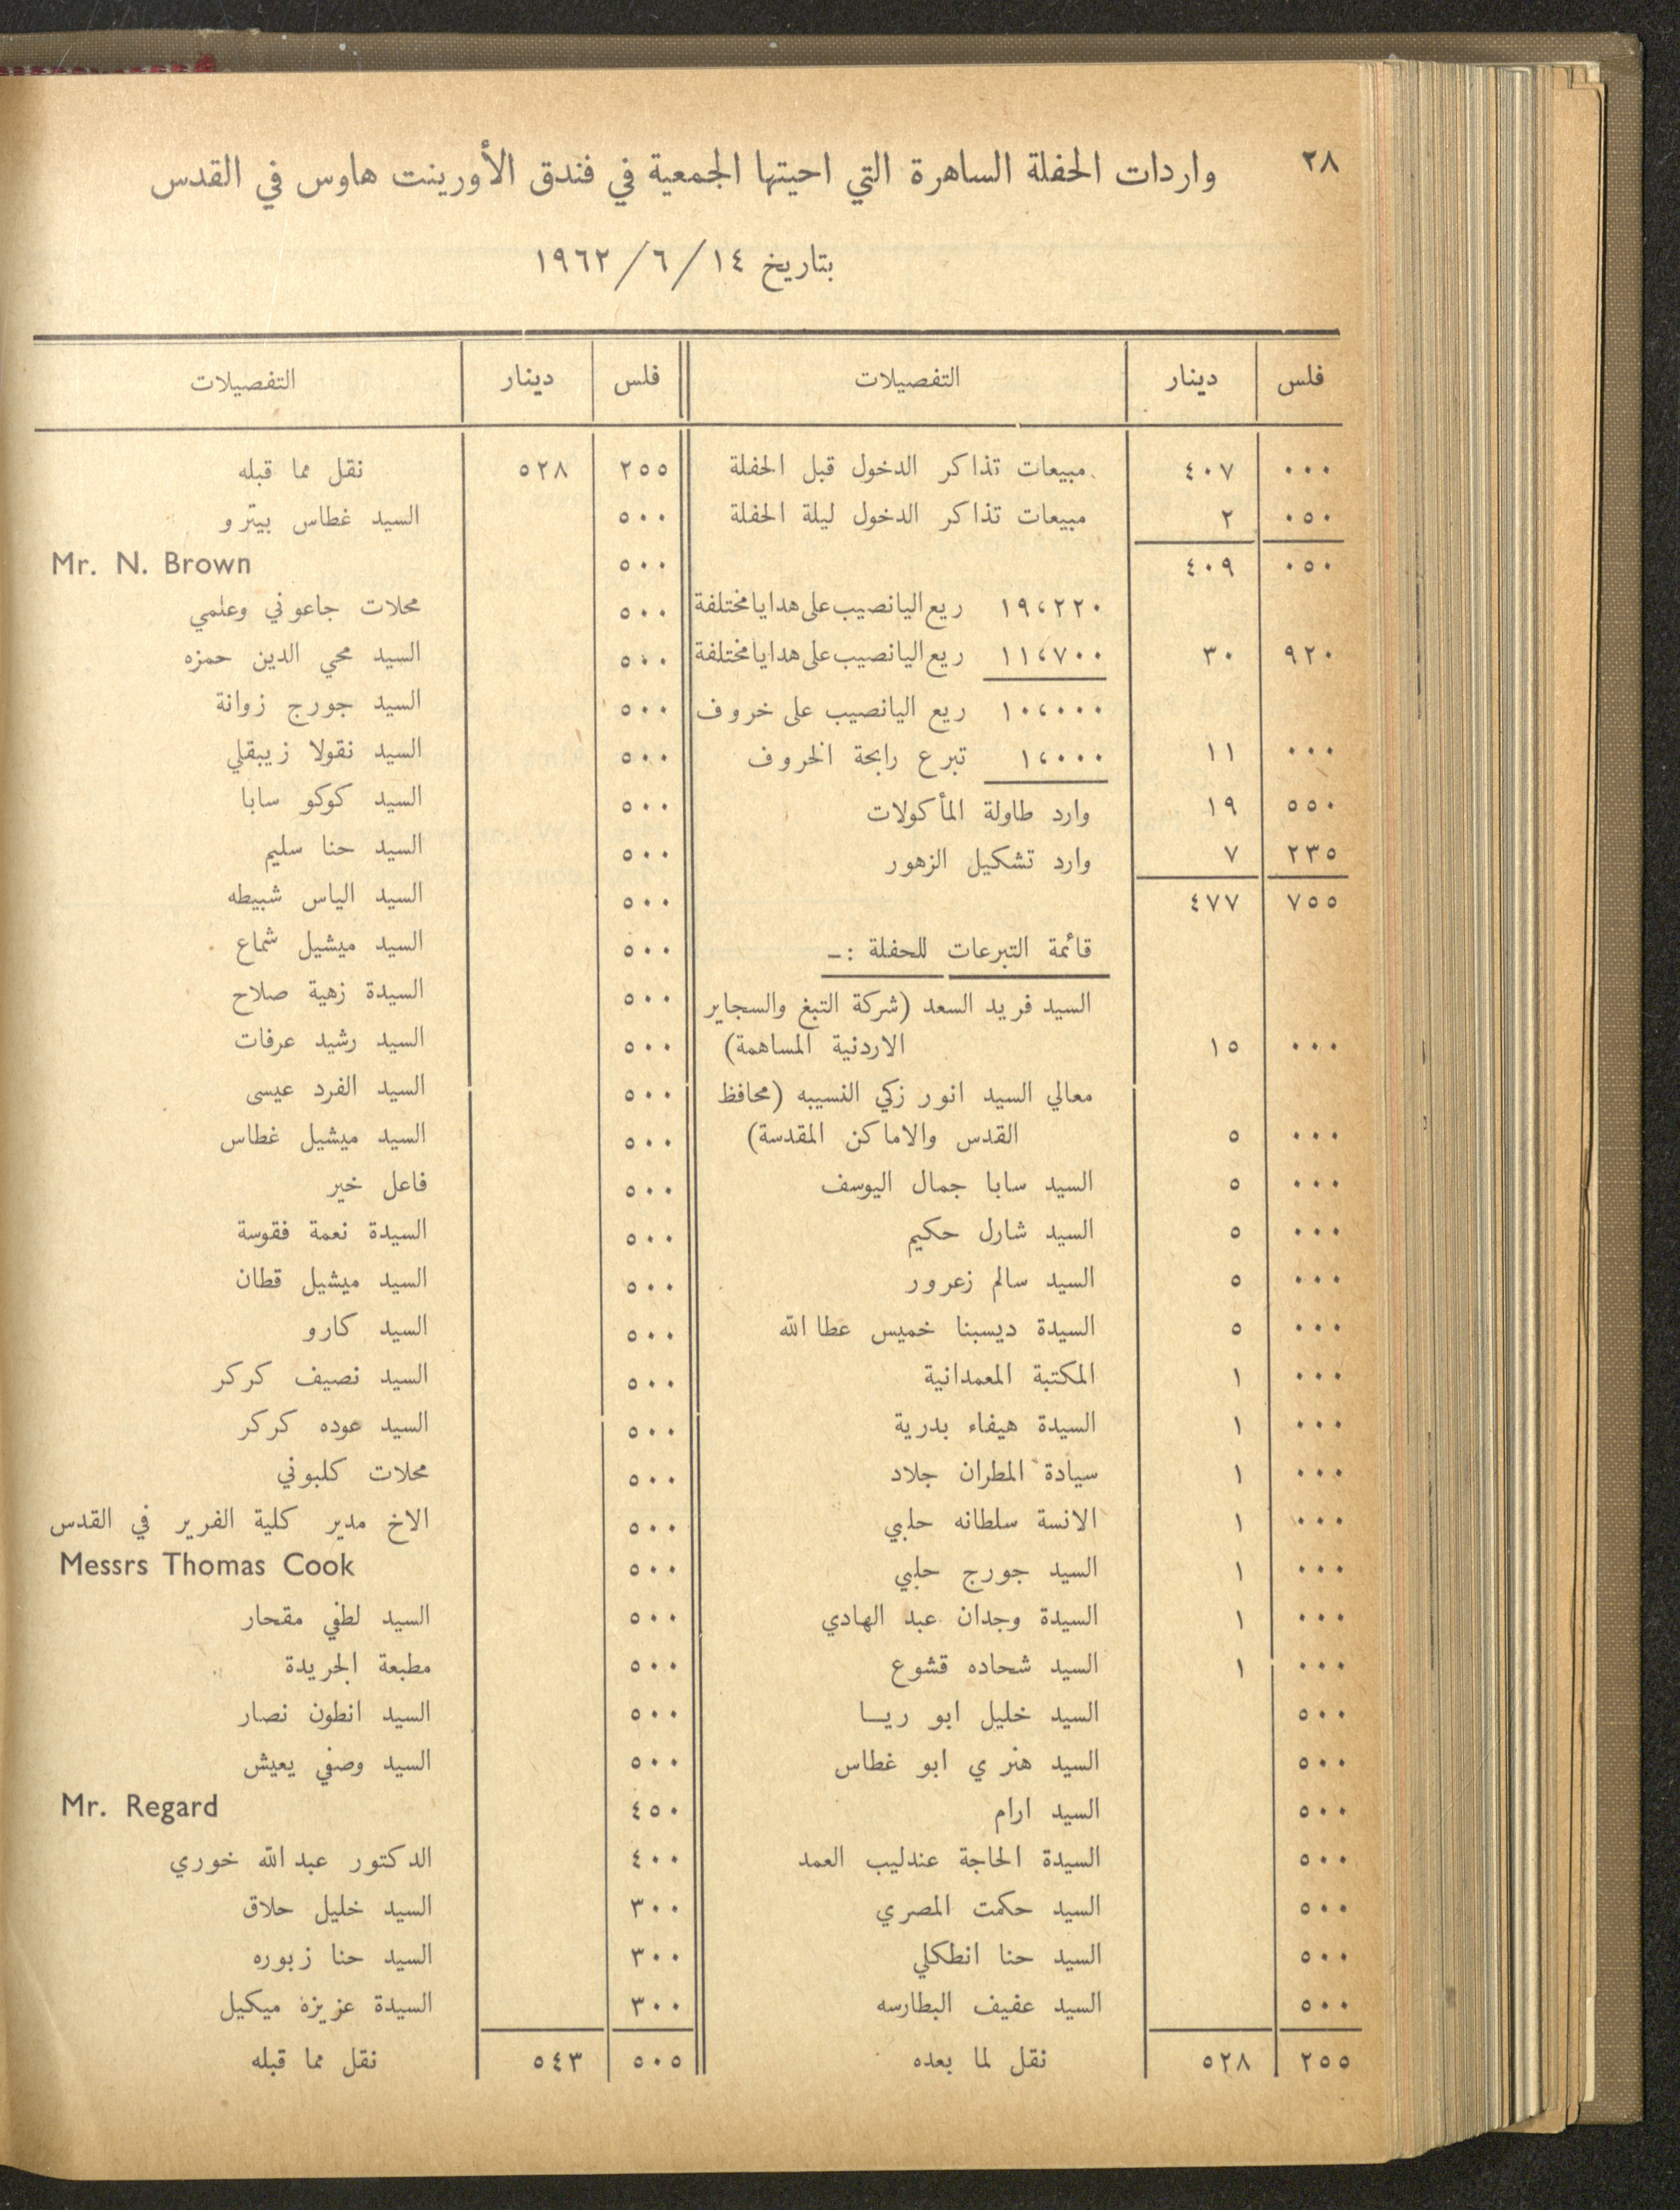 ٢٨
واردات الحفلة الساهرة التي احيتها الجمعية في فندق الأورينت هاوس في القدس
بتاريخ ١٤ / ٦ / ١٩٦٢
فلس دينار التفصيلات
٠٠٠ ٤٠٧ مبيعات تذاكر الدخول قبل الحفلة
٠٥٠ ٢ مبيعات تذاكر الدخول ليلة الحفلة
٠٥٠ ٤٠٩
١٩،٢٢٠ ريع اليانصيب على هدايا مختلفة
٩٢٠ ٣٠ ١١،٧٠٠ ريع اليانصيب على هدايا مختلفة
١٠،٠٠٠ ريع اليانصيب على خروف
٠٠٠ ١١ ١،٠٠٠ تبرع رابحة الخروف
٥٥٠ ١٩ وارد طاولة المأكولات
٢٣٥ ٧ وارد تشكيل الزهور
٧٥٥ ٤٧٧
قائمة التبرعات للحفلة :ـ
السيد فريد السعد (شركة التبغ والسجاير
٠٠٠ ١٥ الاردنية المساهمة)
معالي السيد انور زكي النسيبه (محافظ
٠٠٠ ٥ القدس والاماكن المقدسة)
٠٠٠ ٥ السيد سابا جمال اليوسف
٠٠٠ ٥ السيد شارل حكيم
٠٠٠ ٥ السيد سالم زعرور
٠٠٠ ٥ السيدة ديسبنا خميس عطا الله
٠٠٠ ١ المكتبة المعمدانية
٠٠٠ ١ السيدة هيفاء بدرية
٠٠٠ ١ سيادة المطران جلاد
٠٠٠ ١ الانسة سلطانه حلبي
٠٠٠ ١ السيد جورج حلبي
٠٠٠ ١ السيدة وجدان عبد الهادي
٠٠٠ ١ السيد شحاده قشوع
٥٠٠ السيد خليل ابو ريـا
٥٠٠ السيد هنري ابو غطاس
٥٠٠ السيد ارام
٥٠٠ السيدة الحاجة عندليب العمد
٥٠٠ السيد حكمت المصري
٥٠٠ السيد حنا انطكلي
٥٠٠ السيد عفيف البطارسه
٢٥٥ ٥٢٨ نقل لما بعده
فلس دينار التفصيلات
٢٥٥ ٥٢٨ نقل مما قبله
٥٠٠ السيد غطاس بيترو
٥٠٠ Mr. N. Brown
٥٠٠ محلات جاعوني وعلمي
٥٠٠ السيد محي الدين حمزه
٥٠٠ السيد جورج زوانة
٥٠٠ السيد نقولا زيبقلي
٥٠٠ السيد كوكو سابا
٥٠٠ السيد حنا سليم
٥٠٠ السيد الياس شبيطه
٥٠٠ السيد ميشيل شماع
٥٠٠ السيدة زهية صلاح
٥٠٠ السيد رشيد عرفات
٥٠٠ السيد الفرد عيسى
٥٠٠ السيد ميشيل غطاس
٥٠٠ فاعل خير
٥٠٠ السيدة نعمة فقوسة
٥٠٠ السيد ميشيل قطان
٥٠٠ السيد كارو
٥٠٠ السيد نصيف كركر
٥٠٠ السيد عوده كركر
٥٠٠ محلات كلبوني
٥٠٠ الاخ مدير كلية الفرير في القدس
٥٠٠ Messrs Thomas Cook
٥٠٠ السيد لطفي مقحار
٥٠٠ مطبعة الجريدة
٥٠٠ السيد انطون نصار
٥٠٠ السيد وصفي يعيش
٤٥٠ Mr. Regard
٤٠٠ الدكتور عبد الله خوري
٣٠٠ السيد خليل حلاق
٣٠٠ السيد حنا زبوره
٣٠٠ السيدة عزيزة ميكيل
٥٠٥ ٥٤٣ نقل مما قبله